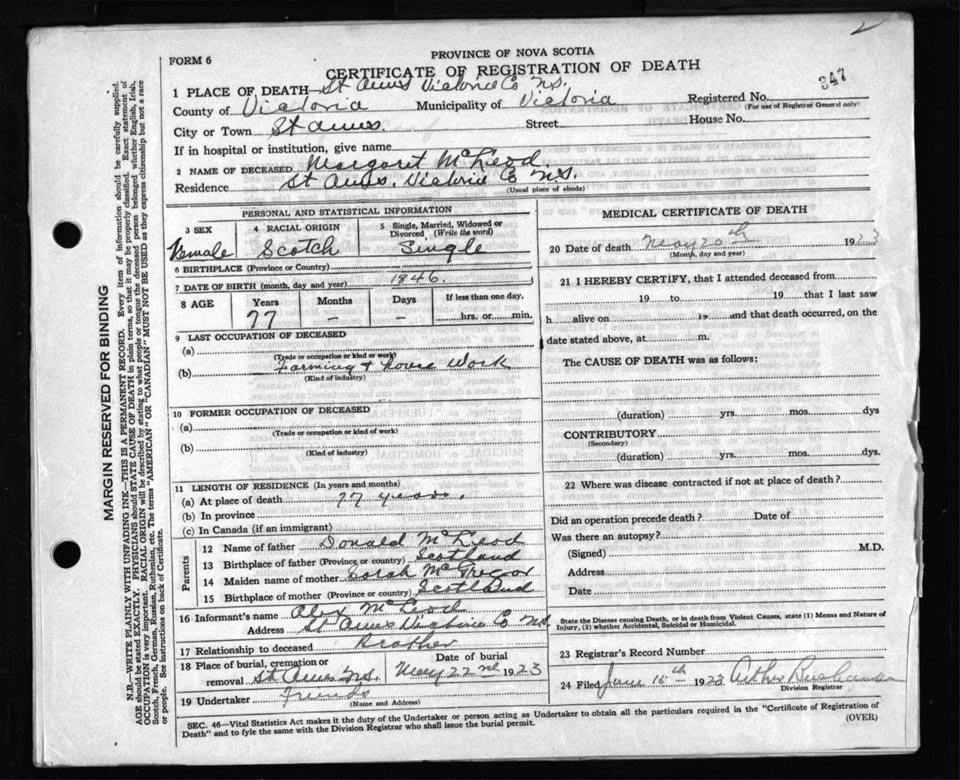 FORM 6
PROVINCE OF NOVA SCOTIA
CERTIFICATE OF REGISTRATION OF DEATH
347
1 PLACE OF DEATH St Anns Victoria Co N.S.
County of Victoria Municipality of Victoria Registered No.
(For use of Registrar General only)
City or Town St Anns. Street House No.
If in hospital or institution, give name
2 NAME OF DECEASED Margaret McLeod.
Residence St Anns. Victoria Co N.S.
(Usual place of abode)
PERSONAL AND STATISTICAL INFORMATION
3 SEX 4 RACIAL ORIGIN 5 Single, Married, Widowed or Divorced (Write the word)
Female Scotch Single
6 BIRTHPLACE (Province or Country)
7 DATE OF BIRTH (month, day and year) 1846.
8 AGE Years Months Days If less than one day,
77 – – hrs. or min.
9 LAST OCCUPATION OF DECEASED
(a)
(Trade or occupation or kind or work)
(b) Farming & House Work
(Kind of industry)
10 FORMER OCCUPATION OF DECEASED
(a)
(Trade or occupation or kind of work)
(b)
(Kind of industry)
11 LENGTH OF RESIDENCE (In years and months)
(a) At place of death 77 years.
(b) In province
(c) In Canada (if an immigrant)
Parents
12 Name of father Donald McLeod
13 Birthplace of father (Province or country) Scotland
14 Maiden name of mother Sarah
15 Birthplace of mother (Province or country) Scotland
16 Informant's name Alex McLeod
Address St Anns Victoria Co N.S.
17 Relationship to deceased Brother
18 Place of burial, cremation or removal St Anns N.S. Date of burial May 22nd 1923
19 Undertaker Friends
(Name and Address)
MEDICAL CERTIFICATE OF DEATH
20 Date of death May 20th 1923
(Month, day and year)
21 I HEREBY CERTIFY, that I attended deceased from
19 to 19 that I last saw
h alive on 19 and that death occurred, on the
date stated above, at m.
The CAUSE OF DEATH was as follows:
(duration) yrs. mos. dys
CONTRIBUTORY
(Secondary)
(duration) yrs. mos. dys.
22 Where was disease contracted if not at place of death?
Did an operation precede death? Date of
Was there an autopsy?
(Signed) M.D.
Address
Date
State the Disease causing Death, or in death from Violent Causes, state (1) Means and Nature of
Injury, (2) whether Accidental, Suicidal or Homicidal.
23 Registrar's Record Number
24 Filed June 15th 1923
Division Registrar
SEC. 46—Vital Statistics Act makes it the duty of the Undertaker or person acting as Undertaker to obtain all the particulars required in the "Certificate of Registration of
Death" and to fyle the same with the Division Registrar who shall issue the burial permit.
(OVER)
MARGIN RESERVED FOR BINDING
N.B.—WRITE PLAINLY WITH UNFADING INK—THIS IS A PERMANENT RECORD. Every item of information should be carefully supplied.
AGE should be stated EXACTLY. PHYSICIANS should STATE CAUSE OF DEATH in plain terms, so that it may be properly classified. Exact statement of
OCCUPATION is very important. RACIAL ORIGIN will be described by stating to what people or tongue the deceased person belonged whether English, Irish,
Scotch, French, German, Russian, Ruthenian, etc. The terms "AMERICAN" OR "CANADIAN" MUST NOT BE USED as they express citizenship but not a race
or people. See instructions on back of Certificate.